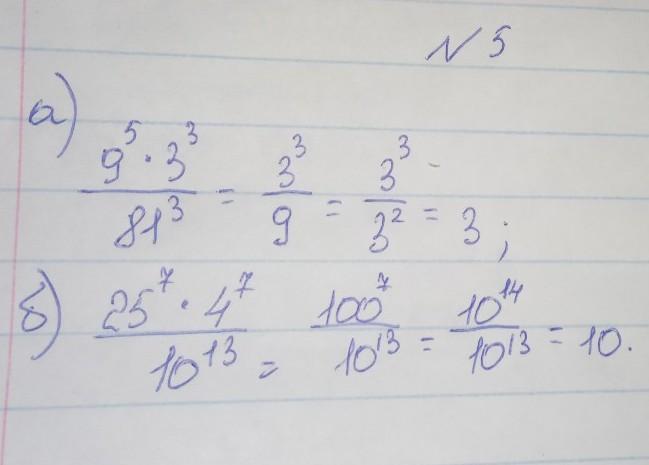 N 5
а)
9⁵ · 3³ / 81³ = 3³ / 9 = 3³ / 3² = 3;
б) 25⁷ · 4⁷ / 10¹³ = 100⁷ / 10¹³ = 10¹⁴ / 10¹³ = 10.